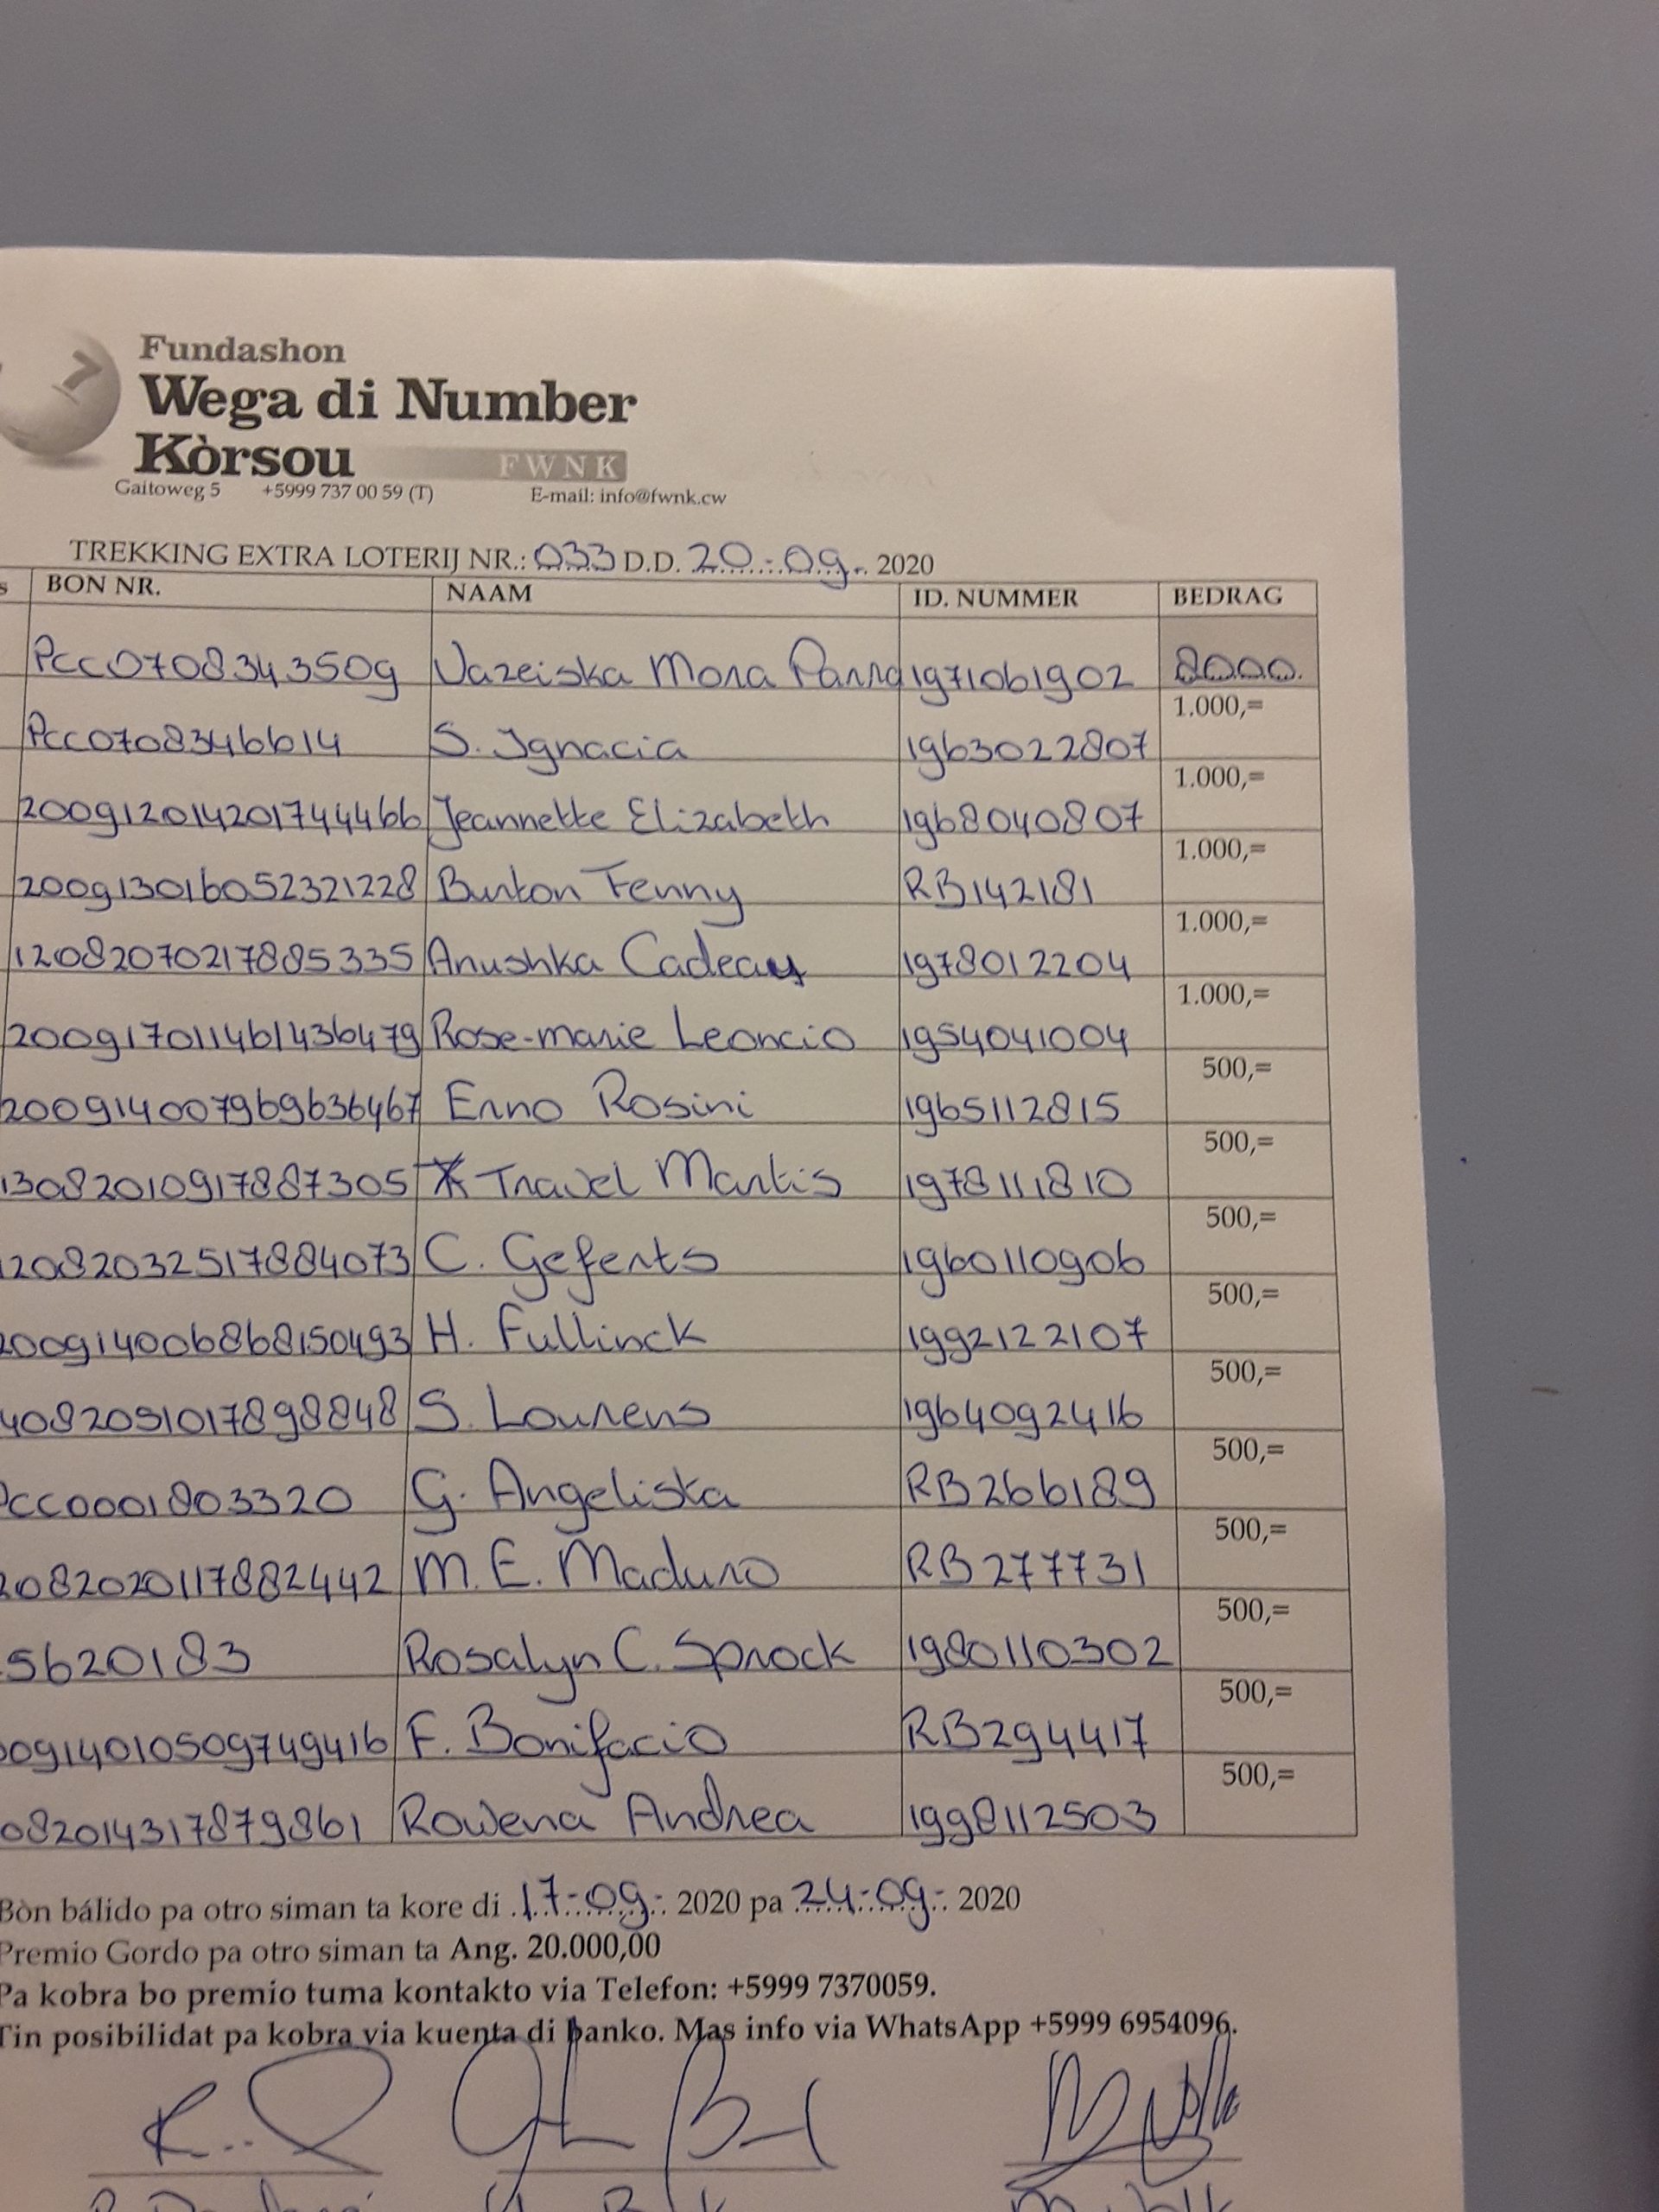 Fundashon
Wega di Number
Kòrsou FWNK
Gaitoweg 5 +5999 737 00 59 (T) E-mail: info@fwnk.cw
TREKKING EXTRA LOTERIJ NR.: 033 D.D. 20-09- 2020
s BON NR. NAAM ID. NUMMER BEDRAG
PCC0708343509 Vazeiska Mora Parra 1971061902 8000.
PCC0708346614 S. Ignacia 1963022807 1.000,=
200912014201744466 Jeannette Elizabeth 1968040807 1.000,=
200913016052321228 Burton Fenny RB142181 1.000,=
12082070217885335 Anushka Cadeau 1978012204 1.000,=
200917011461436479 Rose-marie Leoncio 1954041004 1.000,=
200914007969636467 Erno Rosini 1965112815 500,=
13082010917887305 Travel Martis 1978111810 500,=
12082032517884073 C. Geferts 1960110906 500,=
200914006868150493 H. Fullinck 1992122107 500,=
4082051017898848 S. Lourens 1964092416 500,=
PCC0001803320 G. Angeliska RB266189 500,=
2082020117882442 M.E. Maduro RB277731 500,=
5620183 Rosalyn C. Sprock 1980110302 500,=
00914010509749416 F. Bonifacio RB294417 500,=
082014317879861 Rowena Andrea 1998112503 500,=
Bòn bálido pa otro siman ta kore di 17-09- 2020 pa 24-09- 2020
Premio Gordo pa otro siman ta Ang. 20.000,00
Pa kobra bo premio tuma kontakto via Telefon: +5999 7370059.
Tin posibilidat pa kobra via kuenta di banko. Mas info via WhatsApp +5999 6954096.